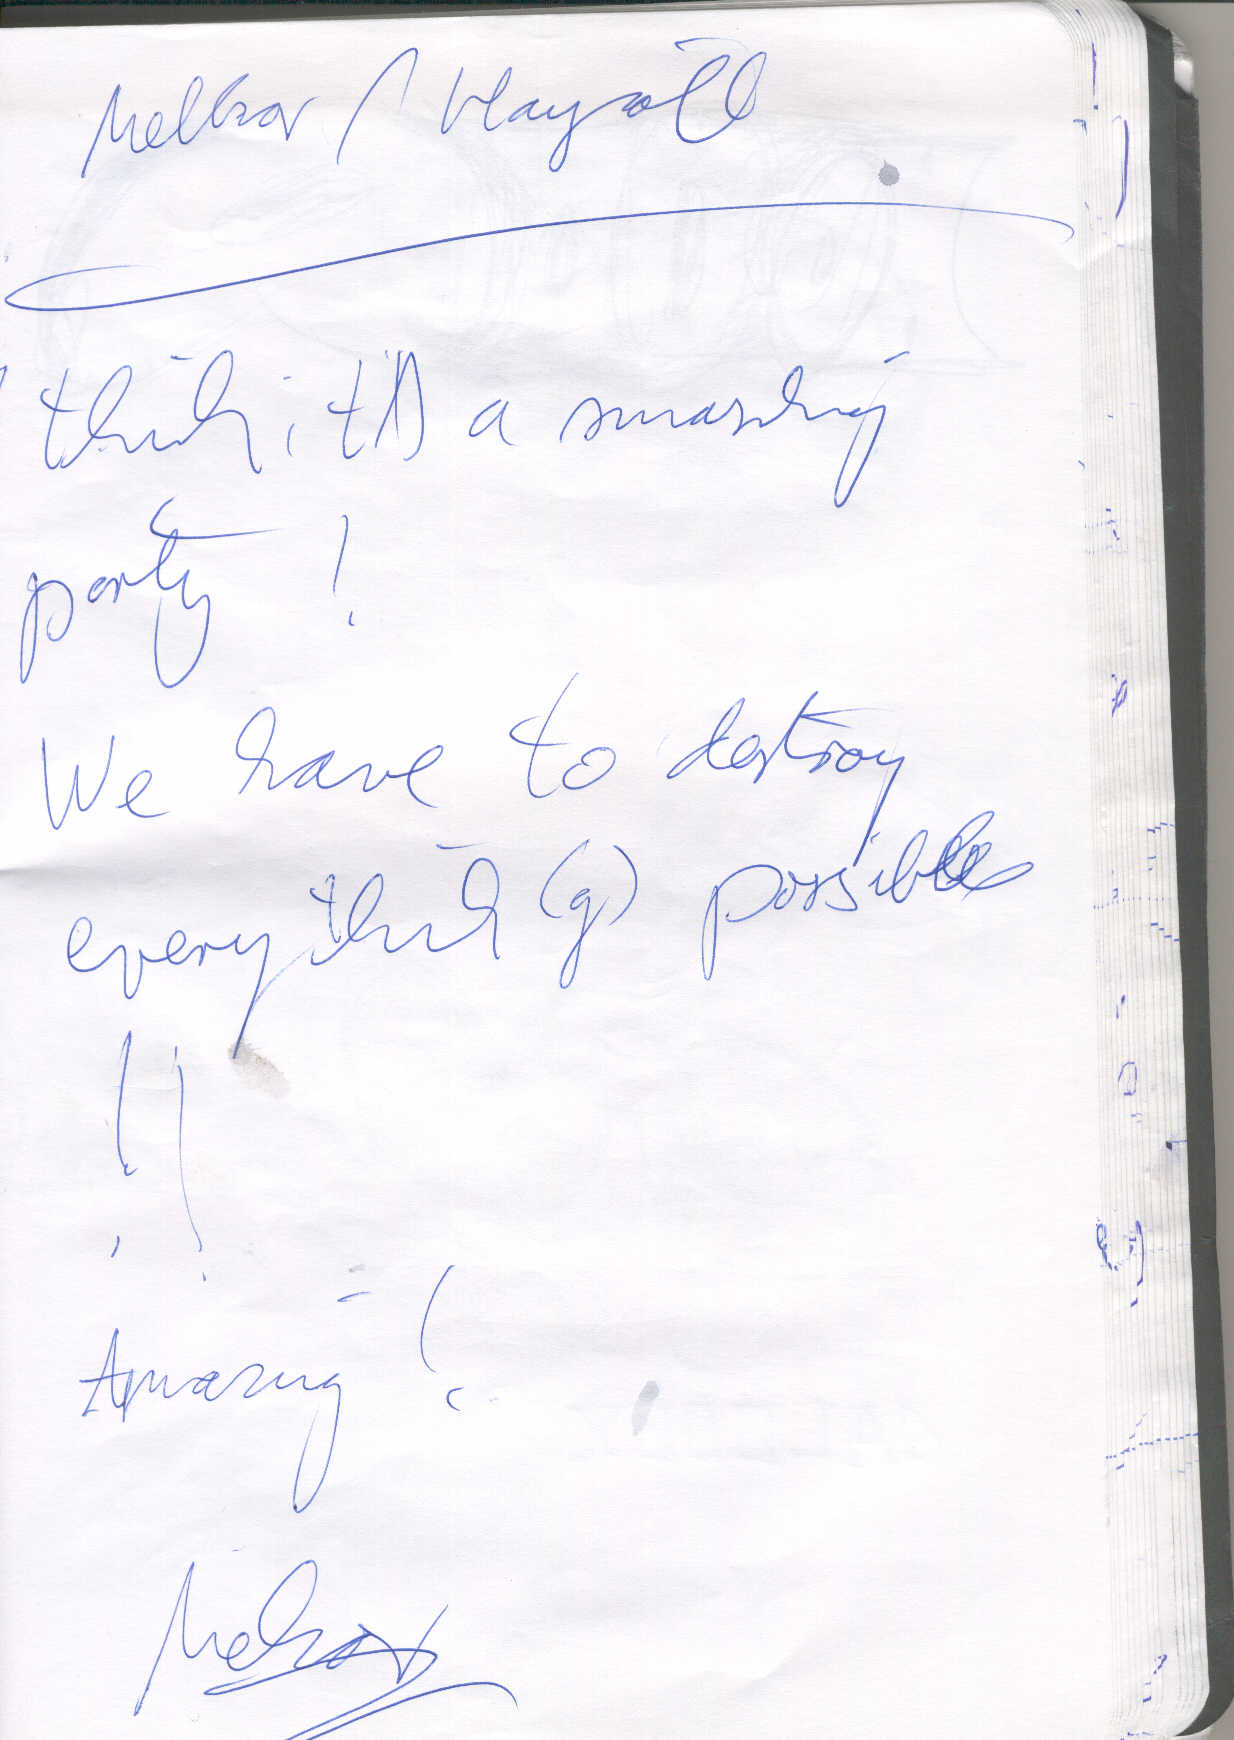 Melkor / Hayroll
think it's a smashing
party !
We have to destroy
everythin (g) possible
!!
Amazing !
Melkor